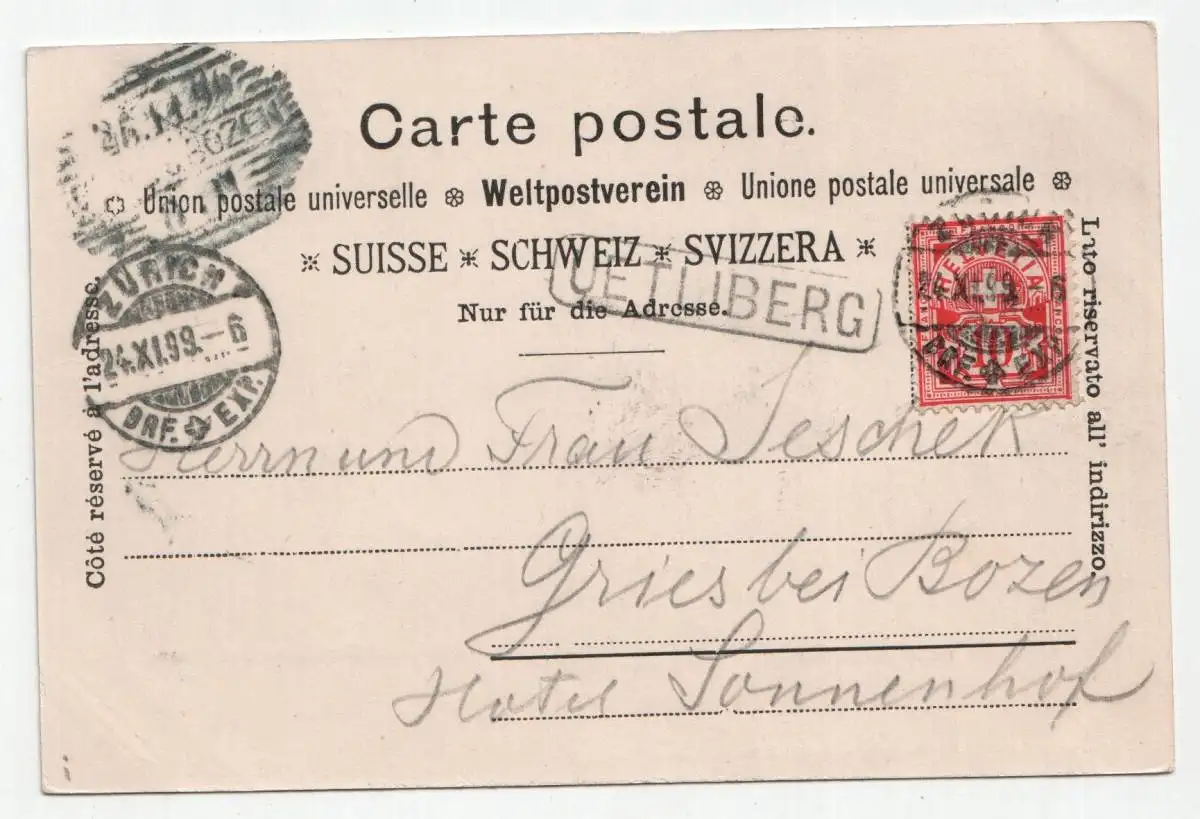 Carte postale.
Union postale universelle Weltpostverein Unione postale universale
SUISSE * SCHWEIZ * SVIZZERA
Nur für die Adresse.
UETLIBERG
BOZEN
ZÜRICH
24.XI.99.-6
BRF. EXP.
HELVETIA
24.XI.99.-6
10
BRF. EXP.
Côté réservé à l'adresse.
Lato riservato all' indirizzo.
Herrn und Frau Jeschek
Gries bei Bozen
Hotel Sonnenhof